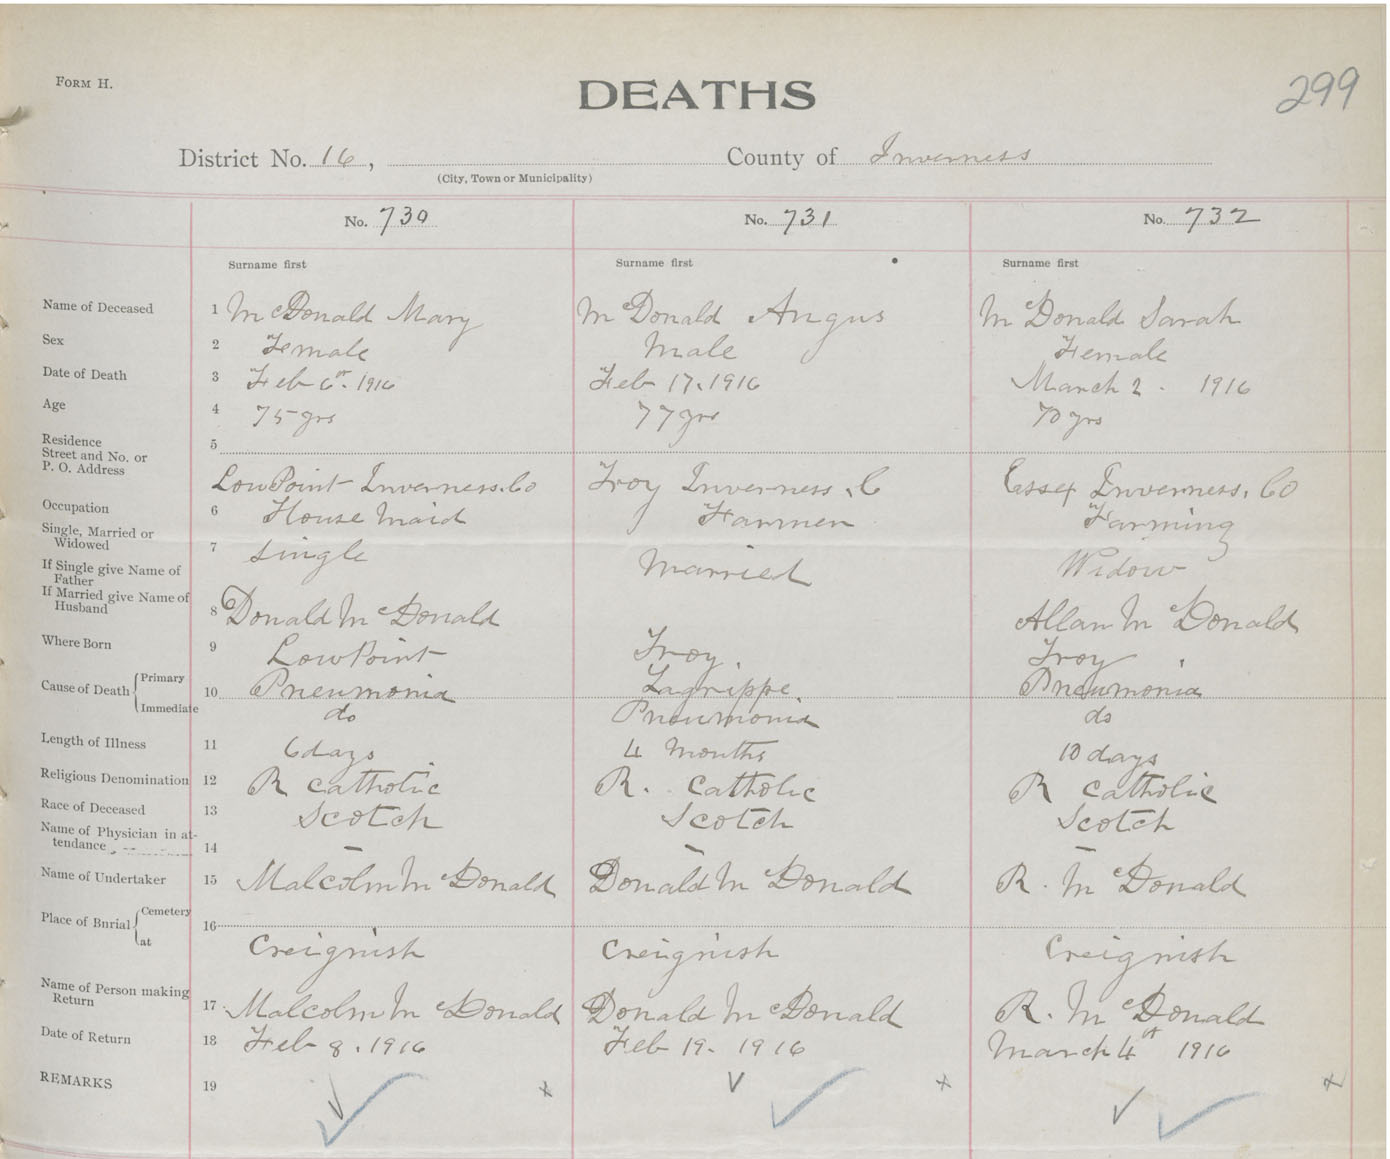 FORM H.
DEATHS
299
District No. 16,
County of Inverness
(City, Town or Municipality)
No. 730 No. 731 No. 732
Surname first Surname first Surname first
Name of Deceased 1 McDonald Mary McDonald Angus McDonald Sarah
Sex 2 Female Male Female
Date of Death 3 Feb 6th. 1916 Feb 17. 1916 March 2. 1916
Age 4 75 yrs 77 yrs 70 yrs
Residence 5
Street and No. or
P. O. Address
Low Point Inverness. Co Troy Inverness. C Essex Inverness. Co
Occupation 6 House Maid Farmer Farming
Single, Married or
Widowed 7 Single Married Widow
If Single give Name of
Father
If Married give Name of
Husband 8 Donald McDonald Allan McDonald
Where Born 9 Low Point Troy. Troy
Cause of Death Primary 10 Pneumonia Lagrippe. Pneumonia
Immediate do Pneumonia do
Length of Illness 11 6 days 4 months 10 days
Religious Denomination 12 R Catholic R. Catholic R Catholic
Race of Deceased 13 Scotch Scotch Scotch
Name of Physician in at-
tendance 14 – – –
Name of Undertaker 15 Malcolm McDonald Donald McDonald R. McDonald
Place of Burial Cemetery 16
at Creignish Creignish Creignish
Name of Person making
Return 17 Malcolm McDonald Donald McDonald R. McDonald
Date of Return 18 Feb 8. 1916 Feb 19. 1916 March 4th 1916
REMARKS 19